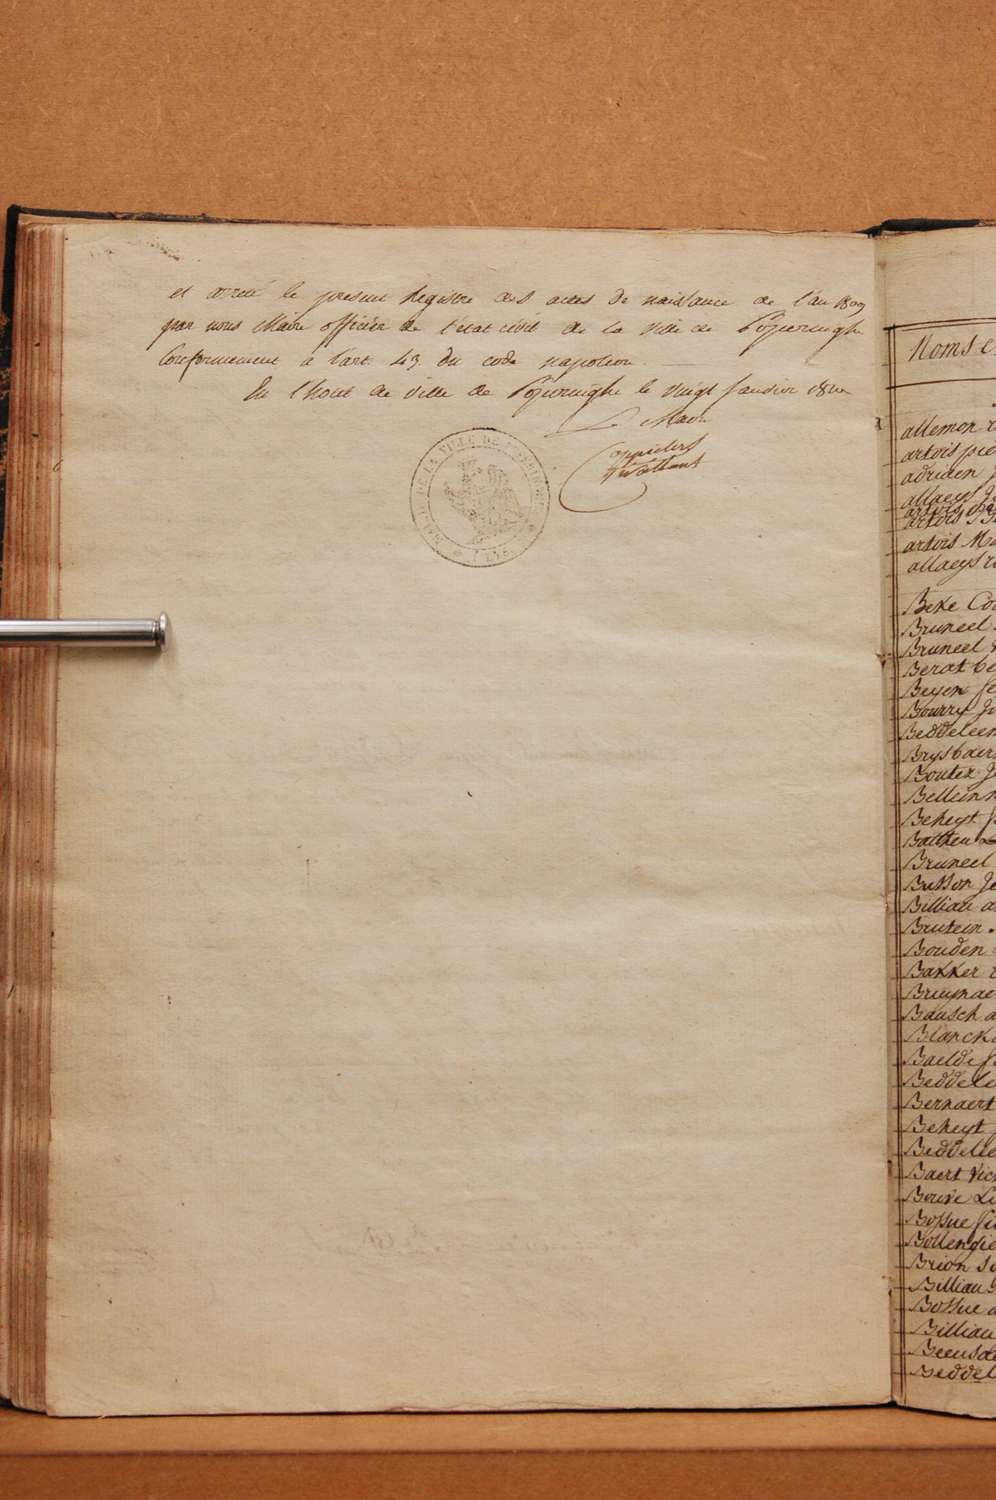 et arreté le present Registre des actes de naissance de l'an 1809
par nous Maire officier de l'etat civil de la ville de Poperinghe
Conformement a l'art. 43 du code napoleon
En l'hotel de ville de Poperinghe le vingt Janvier 1810
Le Maire
MAIRIE DE LA VILLE DE POPERINGHE
(LYS)
Noms e
allemon
artois pie
adrien
allaeys
artois
artois
artois Ma
allaeys
Beke Co
Bruneel
Bruneel
Berat
Beyen
Bourry
Beddeleem
Brysbaer
Bouten
Bellein
Beheyt
Battheu
Bruneel
Busson
Billiau a
Brutein
Bouden
Bakker
Bruynae
Bausch a
Blancka
Baelde
Beddele
Bernaert
Beheyt
Beddelee
Baert Vic
Bouve Li
Bossue
Bollengie
Brion
Billiau
Bossue
Billiau
Beeusa
Beddel